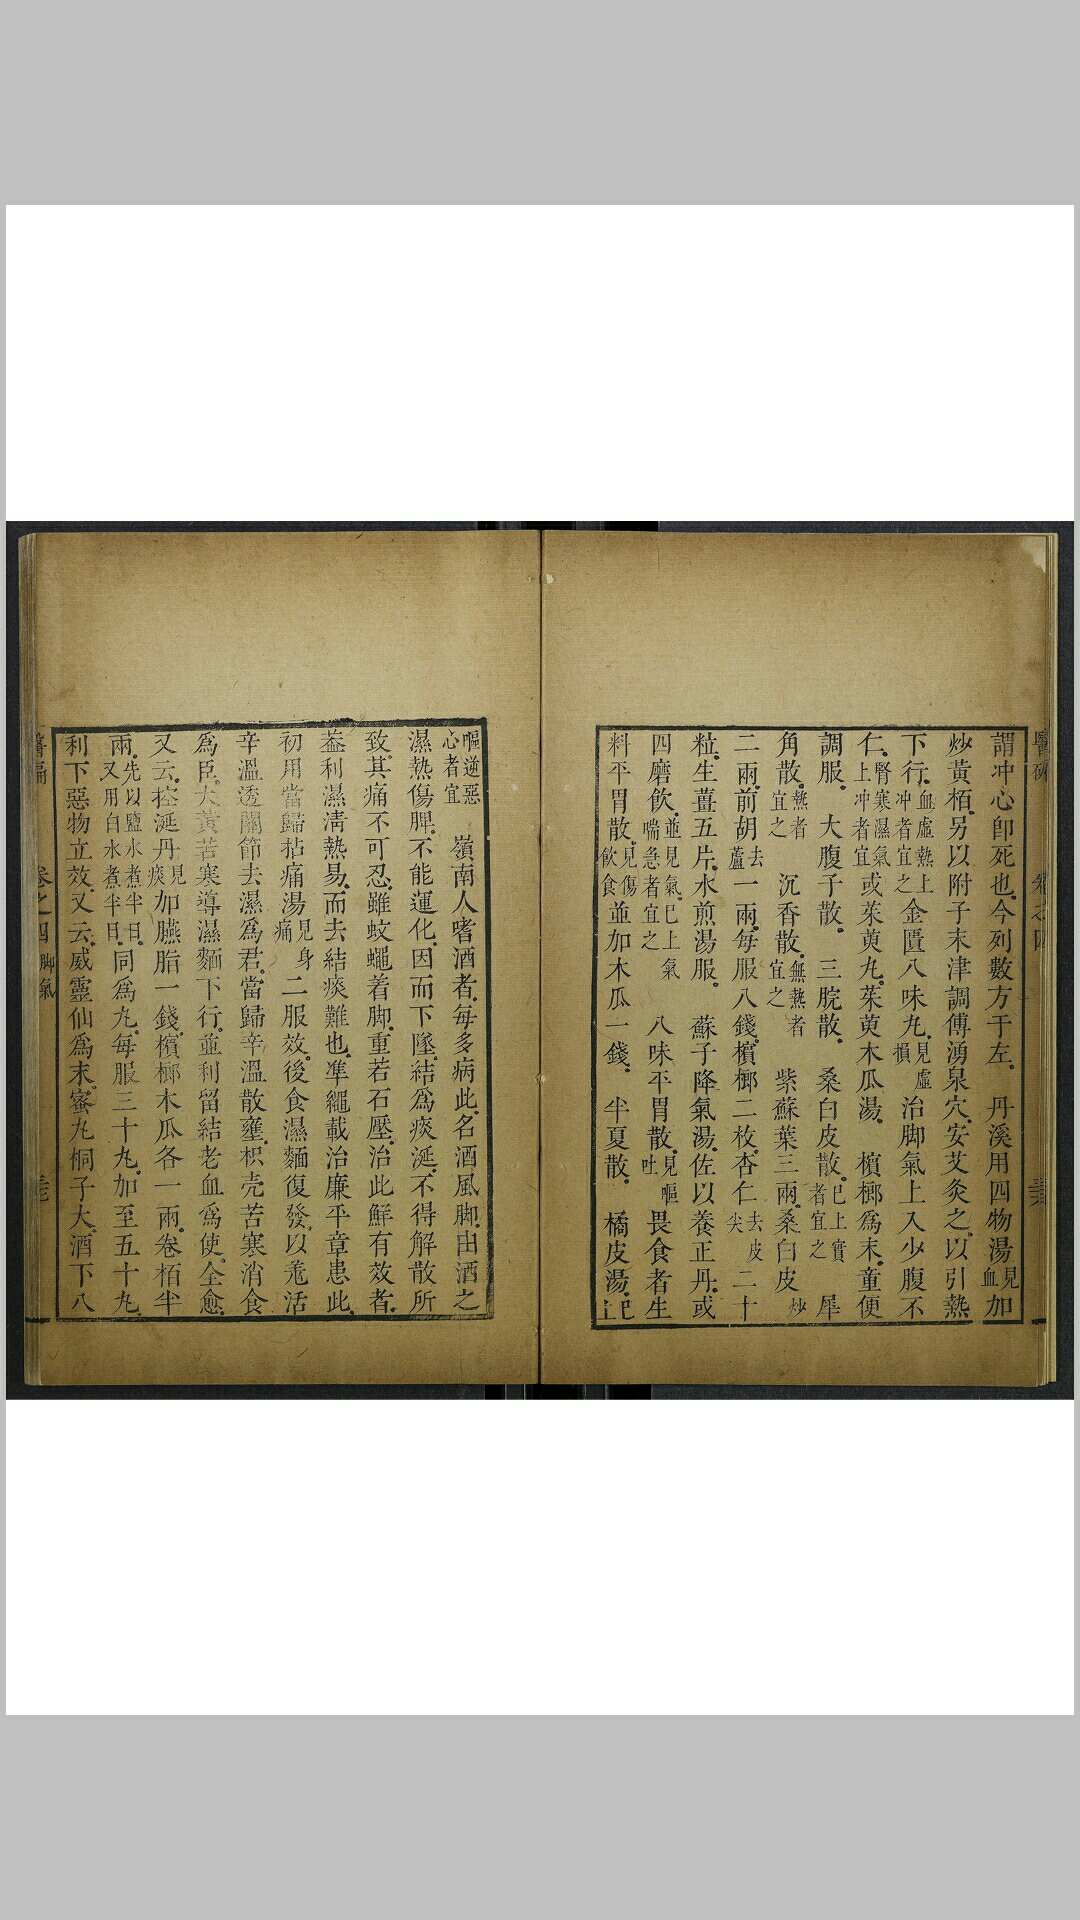 醫碥 卷之四
謂冲心卽死也今列數方于左 丹溪用四物湯見血加
炒黃栢另以附子末津調傅湧泉穴安艾灸之以引熱
下行血虛熱上冲者宜之金匱八味丸見虛損治脚氣上入少腹不
仁腎寒濕氣上冲者宜或茱萸丸茱萸木瓜湯 檳榔爲末童便
調服 大腹子散 三脘散 桑白皮散已上實者宜之 犀
角散熱者宜之 沉香散無熱者宜之 紫蘇葉三兩桑白皮炒
二兩前胡去蘆一兩每服八錢檳榔二枚杏仁去皮尖二十
粒生薑五片水煎湯服 蘇子降氣湯佐以養正丹或
四磨飲並見氣已上氣喘急者宜之 八味平胃散見嘔吐畏食者生
料平胃散見傷飲食並加木瓜一錢 半夏散 橘皮湯已上
嘔逆惡心者宜 嶺南人嗜酒者每多病此名酒風脚由酒之
濕熱傷脾不能運化因而下墜結爲痰涎不得解散所
致其痛不可忍雖蚊蠅着脚重若石壓治此鮮有效者
葢利濕淸熱易而去結痰難也凖繩載治廉平章患此
初用當歸拈痛湯見身痛二服效後食濕麵復發以羗活
辛溫透關節去濕爲君當歸辛溫散壅枳壳苦寒消食
爲臣大黃苦寒導濕麵下行並利留結老血爲使全愈
又云控涎丹見痰加臙脂一錢檳榔木瓜各一兩卷栢半
兩先以鹽水煮半日又用白水煮半日同爲丸每服三十丸加至五十丸
利下惡物立效又云威靈仙爲末蜜丸桐子大酒下八
卷之四 脚氣